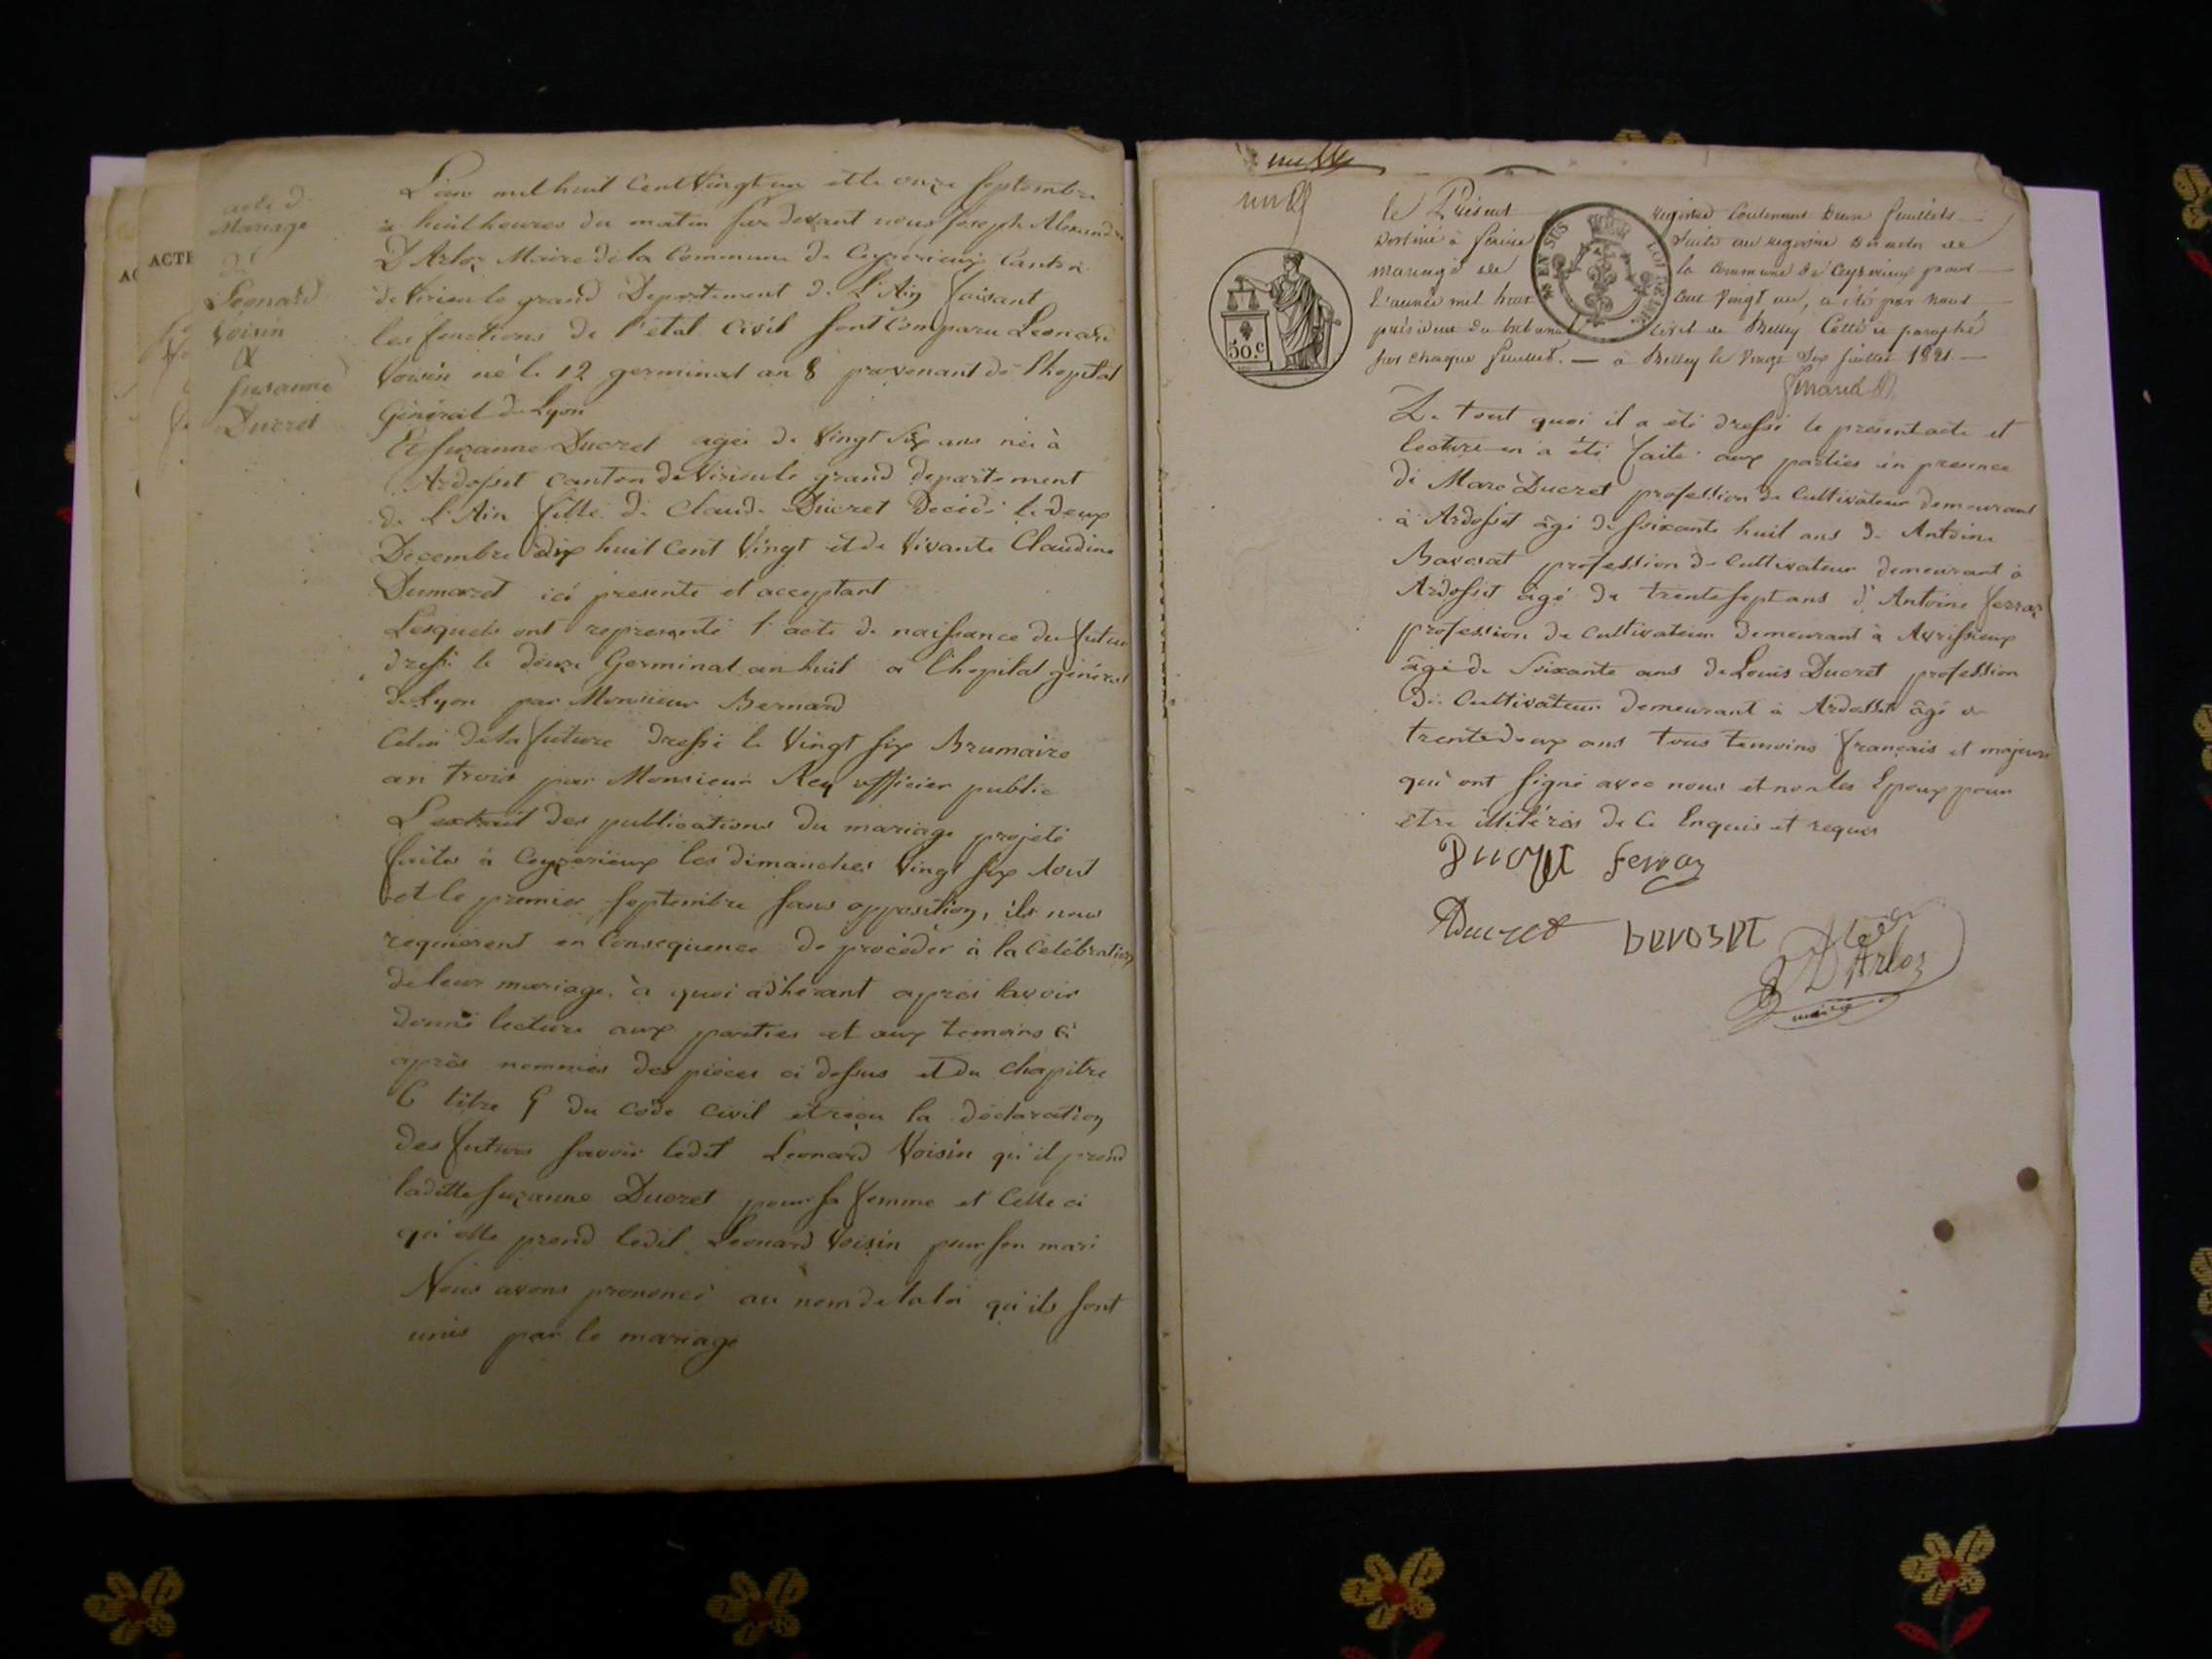 ACTE
AC
acte d
Mariage
de
Leonard
Voisin
&
Susanne
Ducret
L'an mil huit Cent Vingt un et le onze Septembre
à huit heures du matin par devant nous Joseph Alexandre
D'Arloz Maire de la Commune de Ceyzerieux Canton
de Virieu le grand Departement de L'Ain faisant
les fonctions de l'etat Civil sont Comparu Leonard
Voisin né le 12 germinal an 8 provenant de l'hopital
Général de Lyon
Et Suzanne Ducret agée de Vingt Six ans née à
Ardosset canton de Virieu le grand departement
de L'Ain fille de Claude Ducret Décédé le deux
Decembre dix huit Cent Vingt et de Vivante Claudine
Dumaret ici presente et acceptant
Lesquels ont representé l'acte de naissance du futur
dressé le douze Germinal an huit a l'hopital général
de Lyon par Monsieur Bernard
Celui de la future dressé le Vingt six Brumaire
an trois par Monsieur Rey officier public
L'extrait des publications du mariage projeté
faites à Ceyzerieux les dimanches Vingt six Aout
et le premier Septembre sans opposition, ils nous
requierent en Consequence de procéder à la Célébration
de leur mariage, à quoi adhérant après lavoir
donné lecture aux parties et aux temoins ci
après nommés des pièces ci dessus et du Chapitre
6 titre 5 du Code Civil et reçu la déclaration
des futurs savoir ledit Leonard Voisin qu'il prend
ladite Suzanne Ducret pour sa femme et Celle ci
qu'elle prend ledit Leonard Voisin pour son mari
Nous avons prononcé au nom de la loi qu'ils sont
unis par le mariage
le Présent registre Contenant Deux feuillets
Destiné à servir Suite au registre des actes de
mariage de la Commune de Ceyzerieux pour
l'année mil huit Cent Vingt un, a été par Nous
président du tribunal Civil de Belley Cotté et paraphé
sur chaque feuillet. — à Belley le Vingt Six Juillet 1821. —
50.C
EN SUS
LOI DE
De tout quoi il a été dressé le présent acte et
lecture en a été faite aux parties en presence
de Marc Ducret profession de Cultivateur demeurant
à Ardosset âgé de Soixante huit ans de Antoine
profession de Cultivateur demeurant à
Ardosset âgé de trente sept ans d'Antoine ferraz
profession de Cultivateur demeurant à Avrissieux
âgé de Soixante ans de Louis Ducret profession
de Cultivateur demeurant à Ardosset âgé de
trente deux ans tous temoins français et majeurs
qui ont signé avec nous et non les Epoux pour
etre illitérés de Ce Enquis et requis
Ducret ferraz
Ducret
D'Arloz
maire